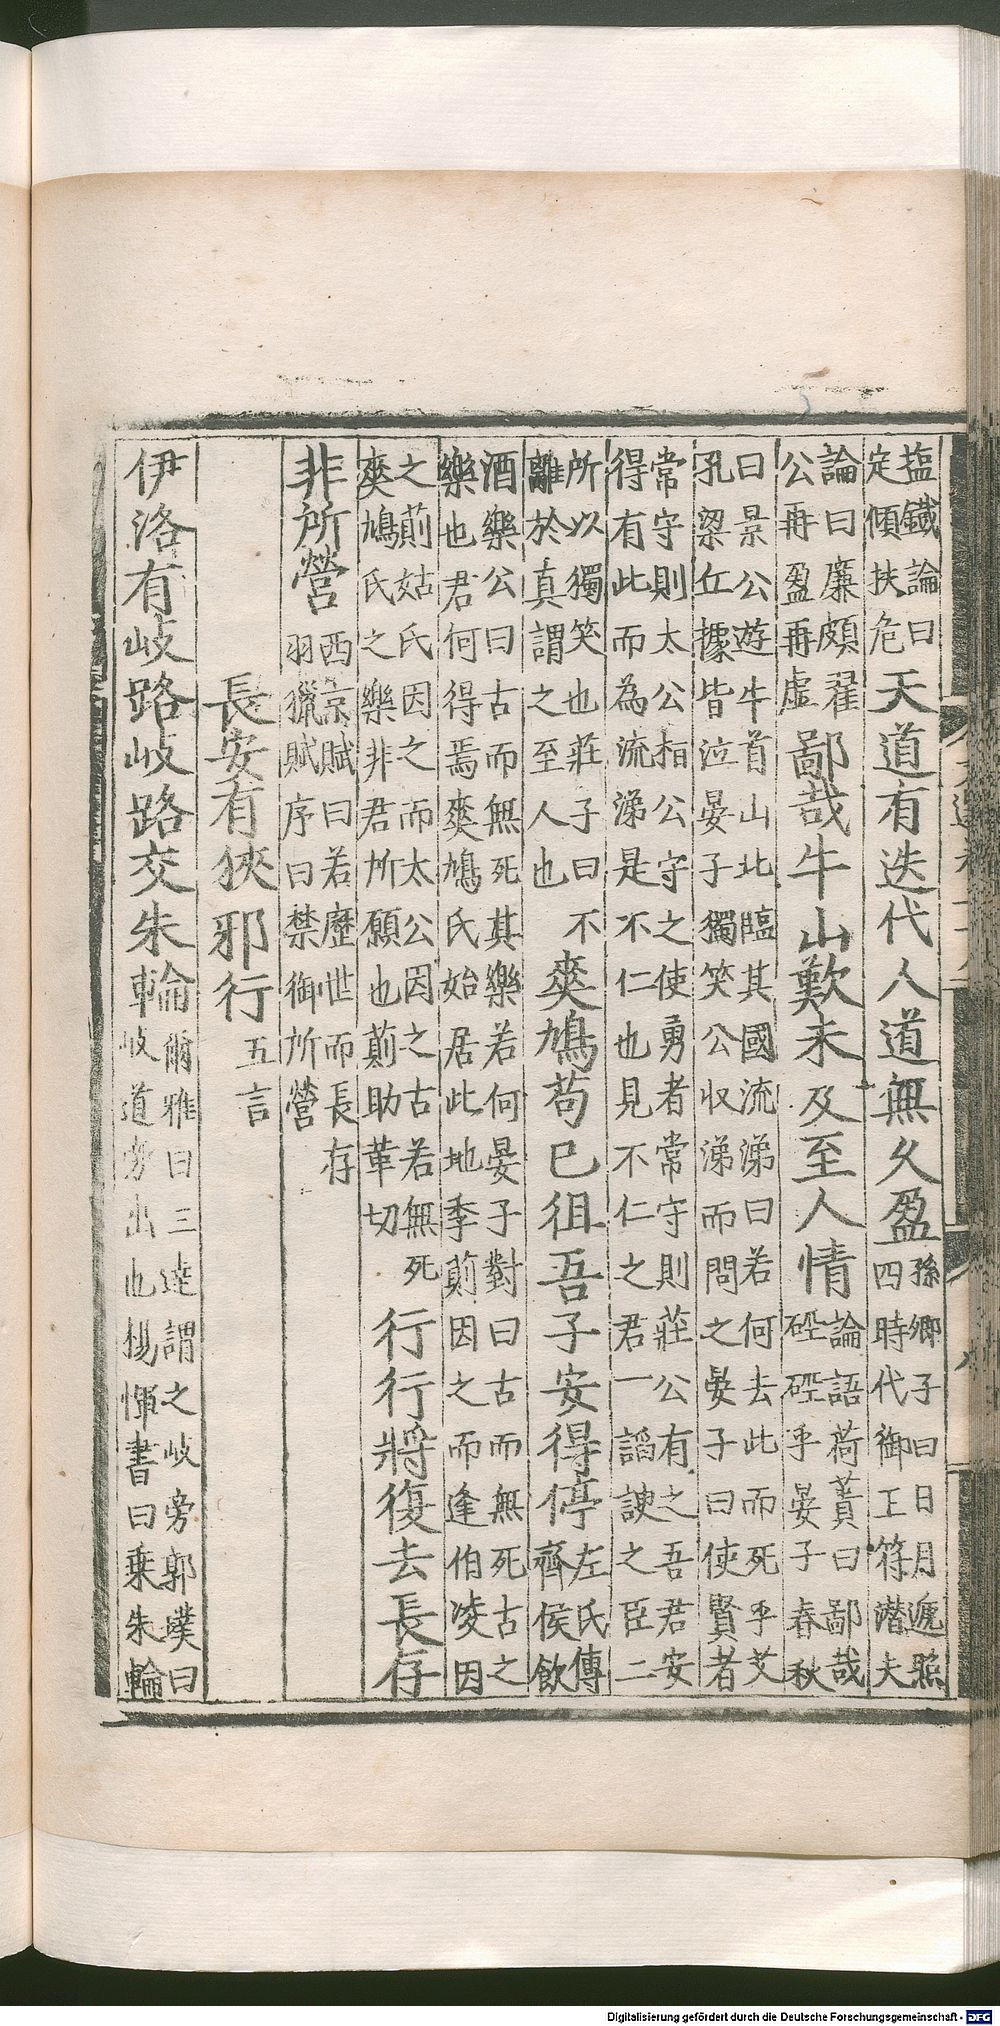 塩鐵論曰定傾扶危天道有迭代人道無久盈孫卿子曰日月遞照四時代御王符潜夫
論曰廉頗翟公再盈再虛鄙哉牛山歎未及至人情論語荷蕢曰鄙哉硜硜乎晏子春秋
曰景公遊牛首山北臨其國流涕曰若何去此而死乎艾孔梁丘據皆泣晏子獨笑公収涕而問之晏子曰使賢者
常守則太公相公守之使勇者常守則莊公有之吾君安得有此而為流涕是不仁也見不仁之君一謟諛之臣二
所以獨笑也莊子曰不離於真謂之至人也爽鳩苟已徂吾子安得停左氏傳齊侯飲
酒樂公曰古而無死其樂若何晏子對曰古而無死古之樂也君何得焉爽鳩氏始居此地季萴因之而逢伯凌因
之萴姑氏因之而太公因之古若無死爽鳩氏之樂非君所願也萴助革切行行將復去長存
非所營西京賦曰若歷世而長存羽獵賦序曰禁御所營
長安有狹邪行五言
伊洛有岐路岐路交朱輪爾雅曰三達謂之岐旁郭璞曰岐道旁出也楊惲書曰乗朱輪
Digitalisierung gefördert durch die Deutsche Forschungsgemeinschaft - DFG